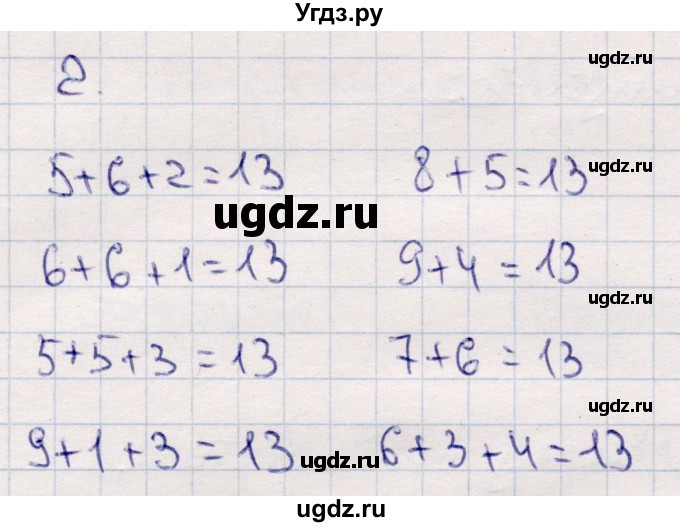 Угдз.ру
2.
ugdz.ru
5+6+2=13 8+5=13
ugdz.ru
ugdz.ru
6+6+1=13 9+4=13
ugdz.ru
5+5+3=13 7+6=13
ugdz.ru
9+1+3=13 6+3+4=13
ugdz.ru
ugdz.ru